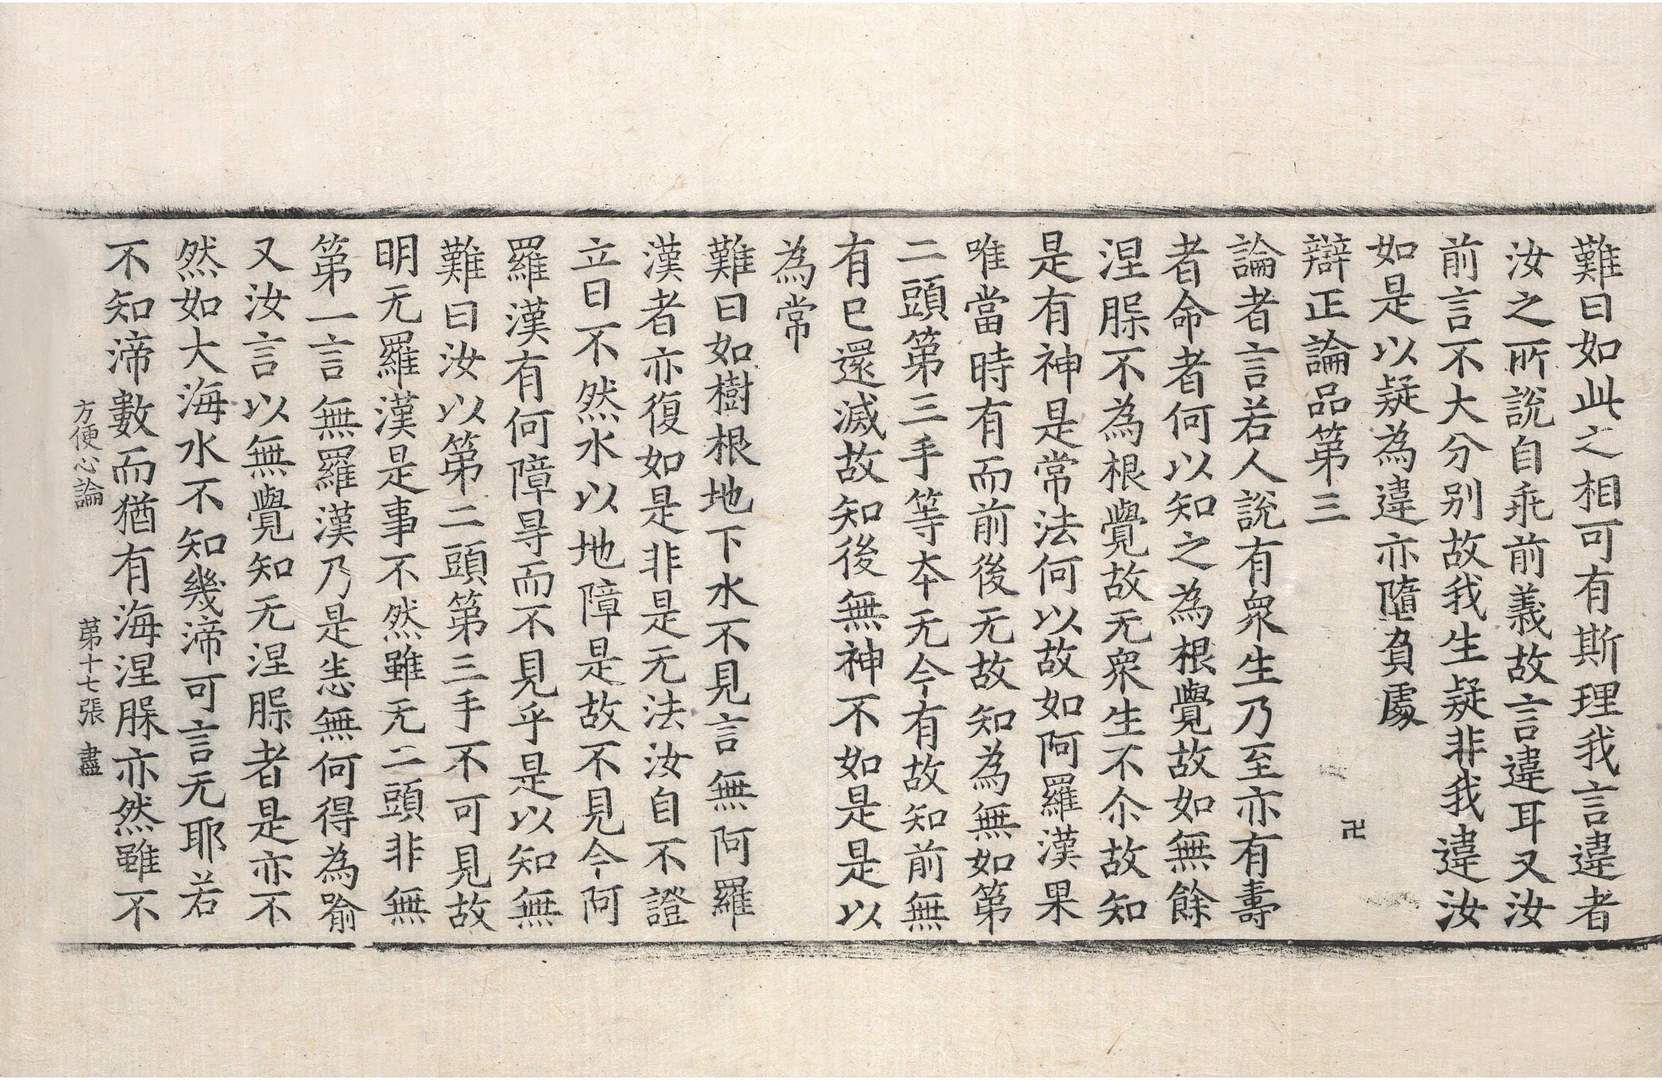 難曰如此之相可有斯理我言違者
汝之所說自乖前義故言違耳又汝
前言不大分别故我生疑非我違汝
如是以疑為違亦隨負處
辯正論品第三
卍
論者言若人說有衆生乃至亦有壽
者命者何以知之為根覺故如無餘
涅䏶不為根覺故无衆生不尒故知
是有神是常法何以故如阿羅漢果
唯當時有而前後无故知為無如第
二頭第三手等夲无今有故知前無
有已還滅故知後無神不如是是以
為常
難曰如樹根地下水不見言無阿羅
漢者亦復如是非是无法汝自不證
立曰不然水以地障是故不見今阿
羅漢有何障㝵而不見乎是以知無
難曰汝以第二頭第三手不可見故
明无羅漢是事不然雖无二頭非無
第一言無羅漢乃是悉無何得為喻
又汝言以無覺知无涅䏶者是亦不
然如大海水不知幾渧可言无耶若
不知渧數而猶有海涅䏶亦然雖不
方便心論 第十七張 盡